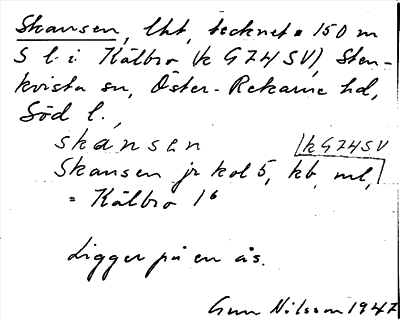 Skansen, lht, tecknet • 150 m
S l. i Kälbro (k G74 SV), Sten-
kvista sn, Öster-Rekarne hd,
Söd l.
skánsen k G74 SV
Skansen jr kol 5, kb ml,
= Kälbro 1⁶
Ligger på en ås.
Gun Nilsson 1947